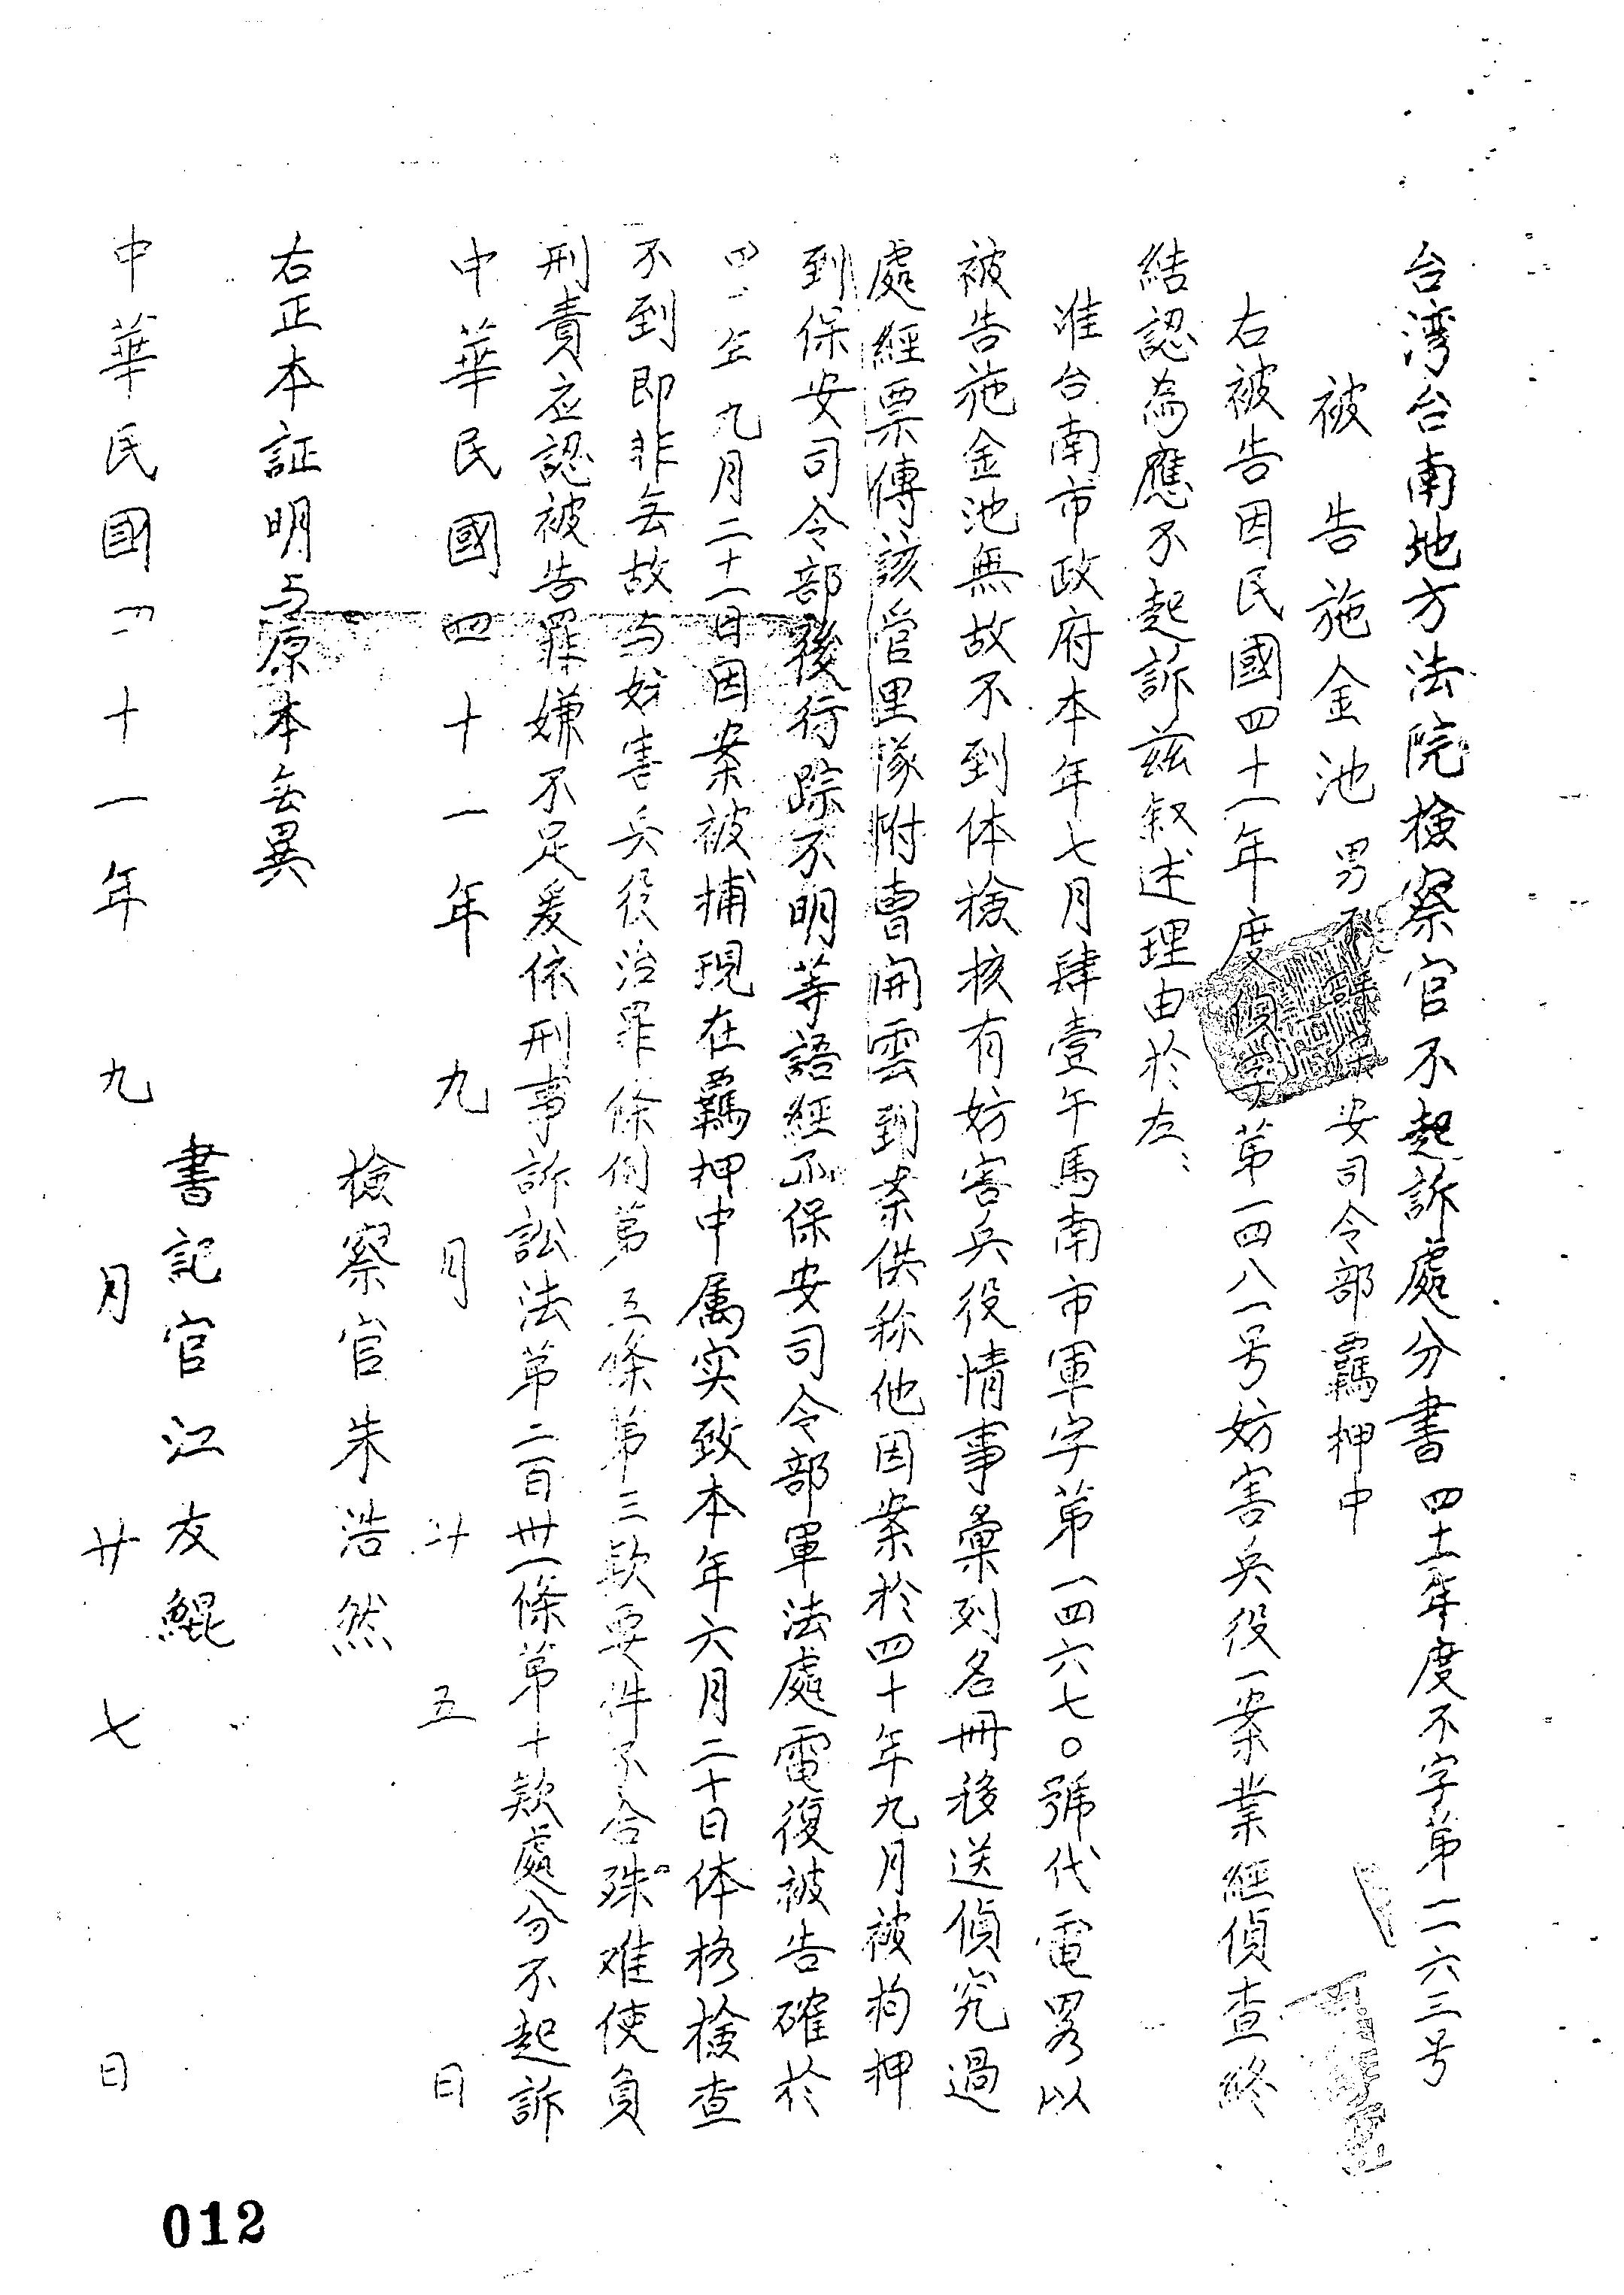 台湾台南地方法院檢察官不起訴處分書 四十一年度不字第一二六三号
被告施金池 男 不詳 保安司令部羈押中
右被告因民國四十一年度偵字第一四八一号妨害兵役一案業經偵查終
結認為應不起訴茲叙述理由於左:
准台南市政府本年七月肆壹午馬南市軍字第一四六七〇號代電畧以
被告施金池無故不到体檢核有妨害兵役情事彙列名冊移送偵究過
處經票傳該管里隊附曹開雲到案供称他因案於四十年九月被拘押
到保安司令部後行踪不明等語經函保安司令部軍法處電復被告確於
四十年九月二十一日因案被捕現在羈押中属实致本年六月二十日体格檢查
不到即非无故与妨害兵役治罪條例第三條第三款要件不合殊难使負
刑責应認被告罪嫌不足爰依刑事訴訟法第二百卅一條第十款處分不起訴
中華民國四十一年九月廿五日
檢察官朱浩然
右正本証明与原本无異
書記官江友鯤
中華民國四十一年九月廿七日
012